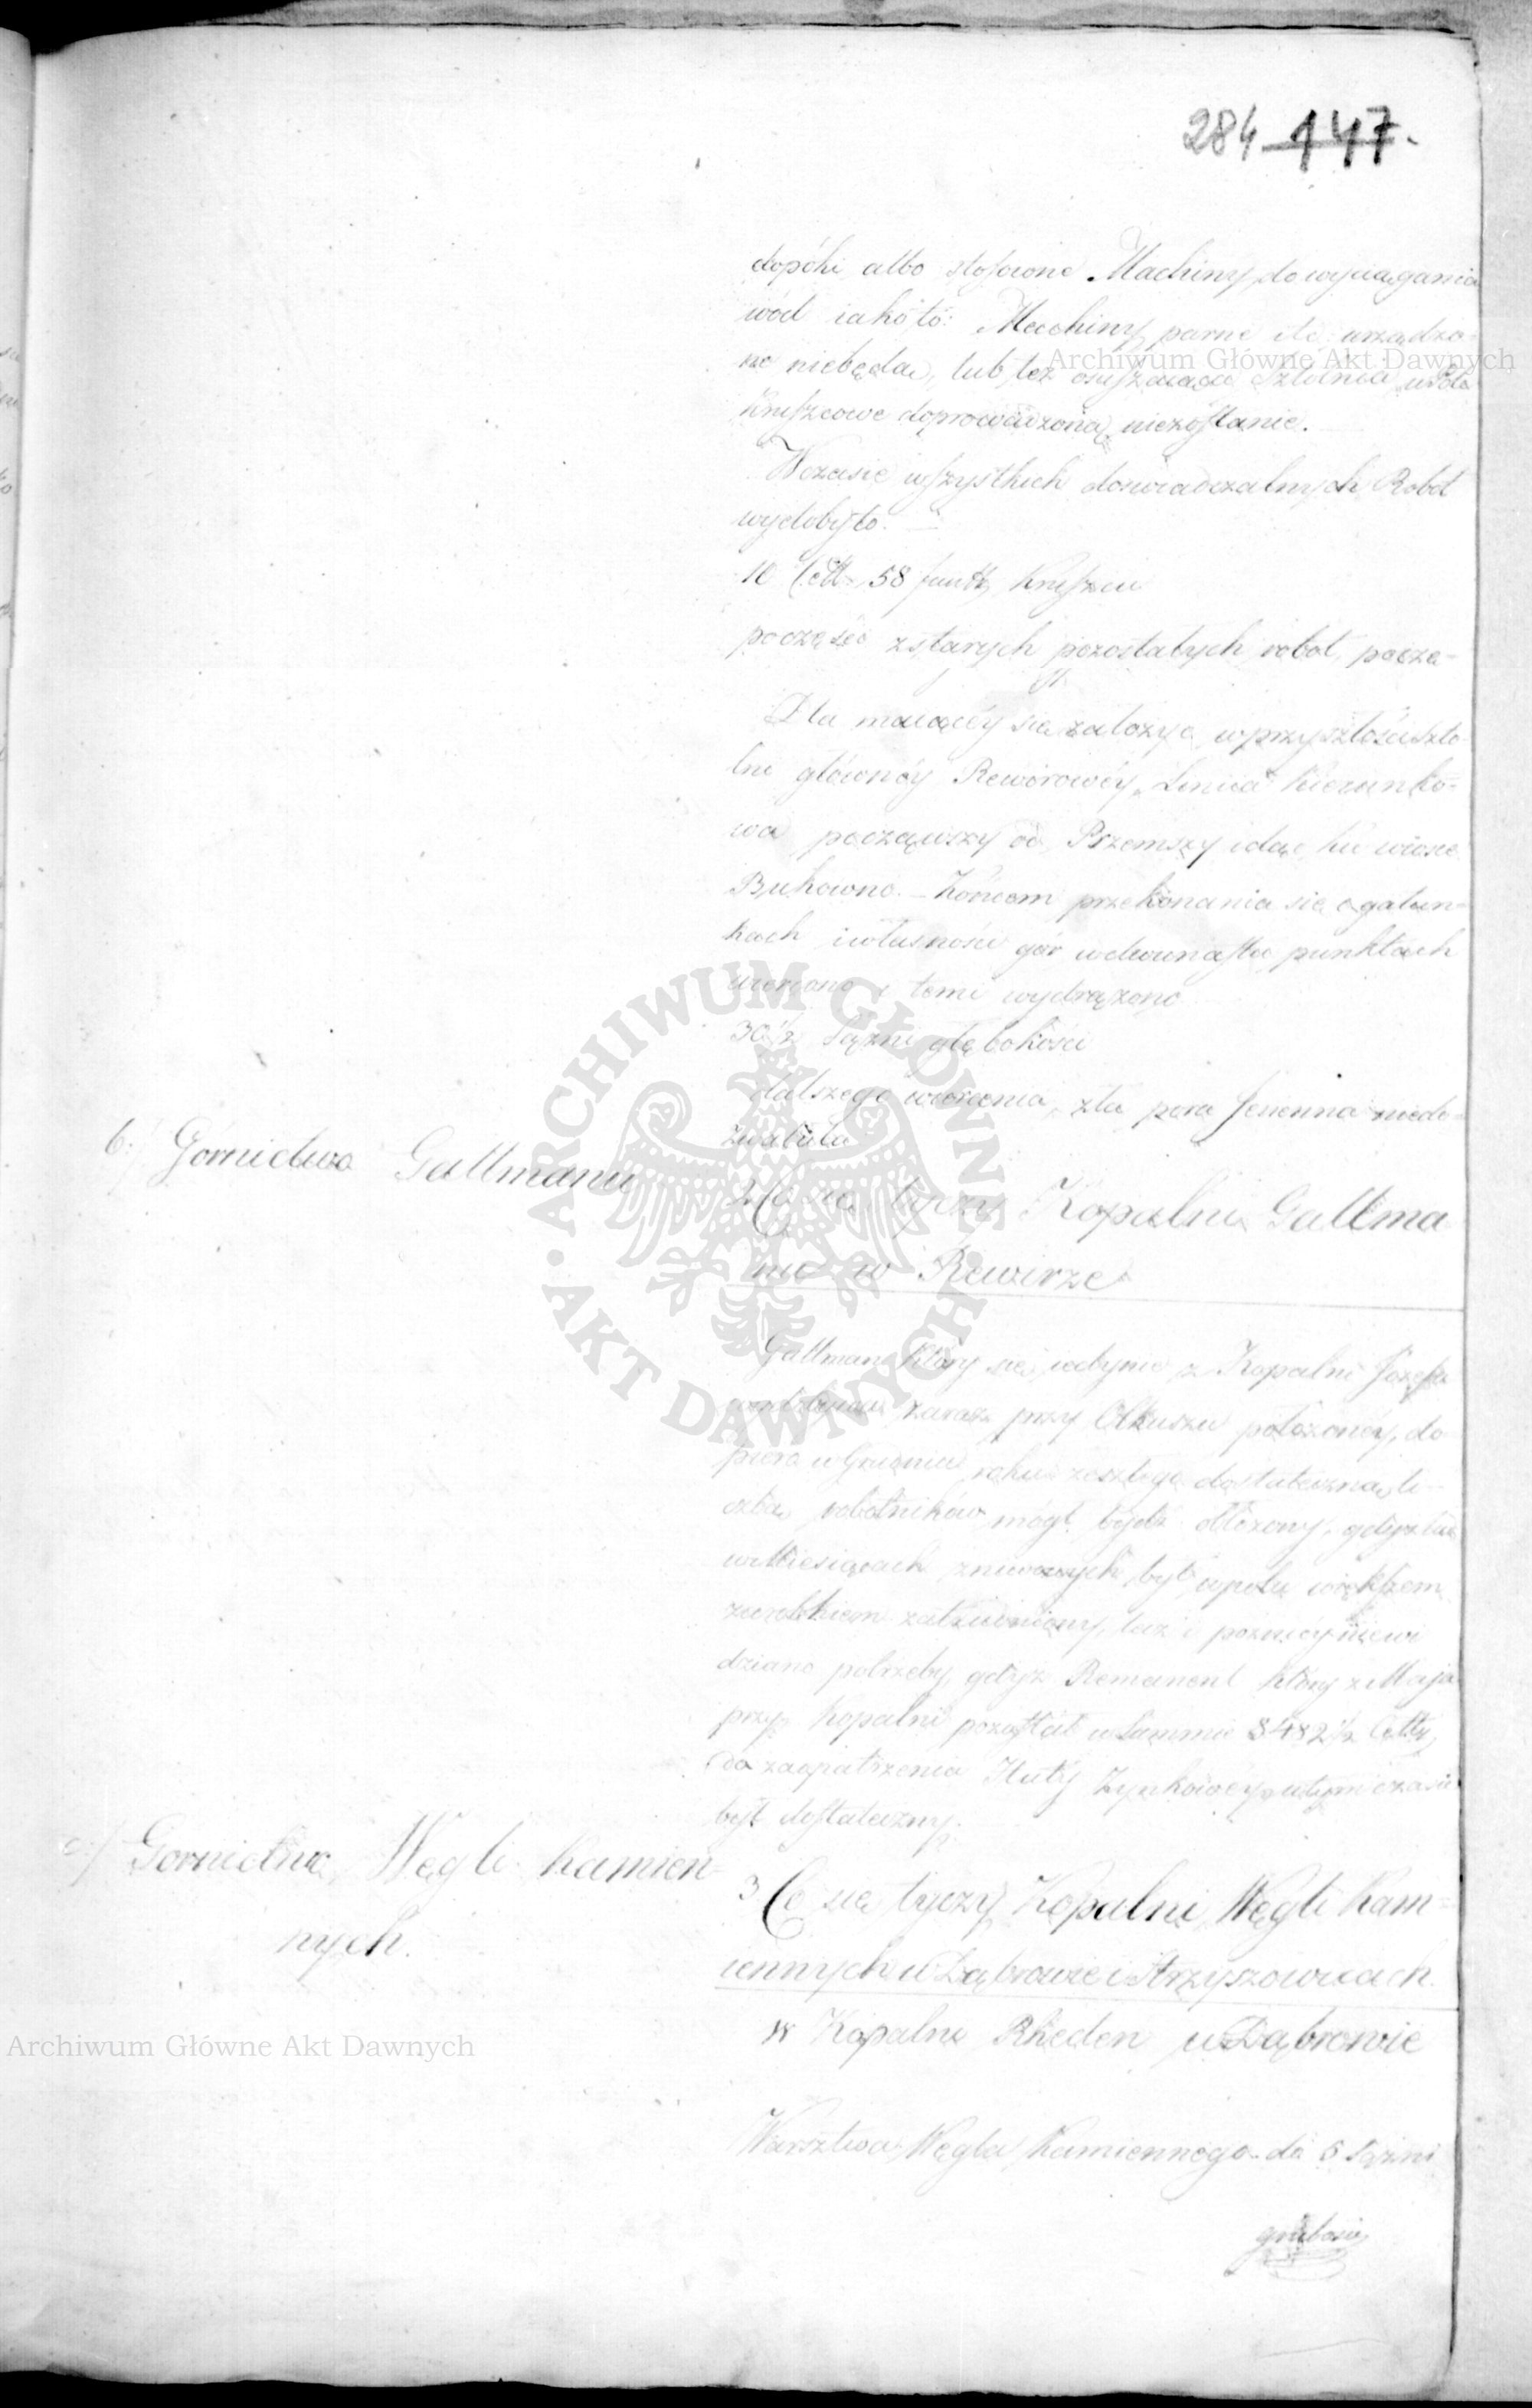 284 147.
dopóki albo stosowne Machiny do wyciągania
wód iako to: Machiny parne etc urządzo-
ne niebędą, lub też osuszaiąca Sztolnia w Pole
Kruszcowe doprowadzoną niezostanie.
Wczasie wszystkich doswiadczalnych Robot
wydobyto. —
10 Cett. 58 funt. Kruszcu
poczęści z starych pozostałych robot, pocze-
Dla maiącéy się założyć w przyszłości Szto-
lni głównéy Rewirowéy, Linia Kierunko-
wa począwszy od Przemszy idąc ku wiosce
Bukowno. — Końcem przekonania się o gatun-
kach i własności gór w dwunastu punktach
wiercono i temi wydrążono
30 1/2 Sążni głębokości
dalszego wiercenia zła pora Jesienna niedo-
zwoliła
b./ Górnictwo Gallmanu
2. Co się tyczy Kopalni Gallma
nu w Rewirze
Gallman który się iedynie z Kopalni Józefa
wydobywa zaraz przy Olkuszu położonéy, do
piero w Grudniu roku zeszłego dostateczną li-
czbą robotników mógł bydź obłożony, gdyż lud
w Miesiącach żniwowych był w polu większem
zarobkiem zatrudniony, też i poźniéy niewi
dziano potrzeby, gdyż Remanent który z Maja
przy Kopalni pozostał w Summie 8482 1/2 Cett.
do zaopatrzenia Huty Zynkowéy w tym czasie
był dostateczny.
c./ Gornictwo Węgli Kamien-
nych.
3 Co się tyczy Kopalni Węgli Kam-
iennych w Dąbrowie i Strzyszowicach.
W Kopalni Rheden w Dąbrowie
Warsztwa Węgla Kamiennego do 6 Sążni
grubości
Archiwum Główne Akt Dawnych
Archiwum Główne Akt Dawnych
ARCHIWUM GŁÓWNE • AKT DAWNYCH •